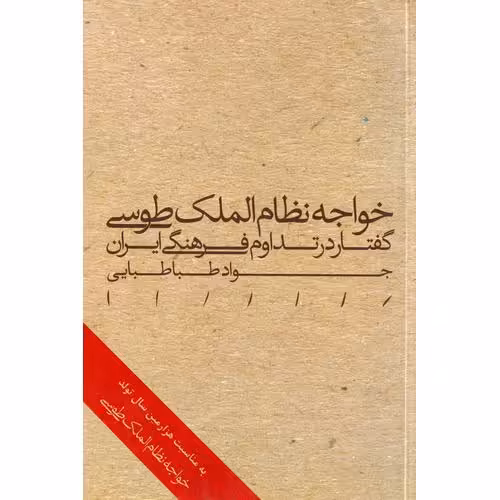 خواجه نظام الملک طوسی
گفتار در تداوم فرهنگی ایران
جواد طباطبایی
به مناسبت هزارمین سال تولد
خواجه نظام الملک طوسی